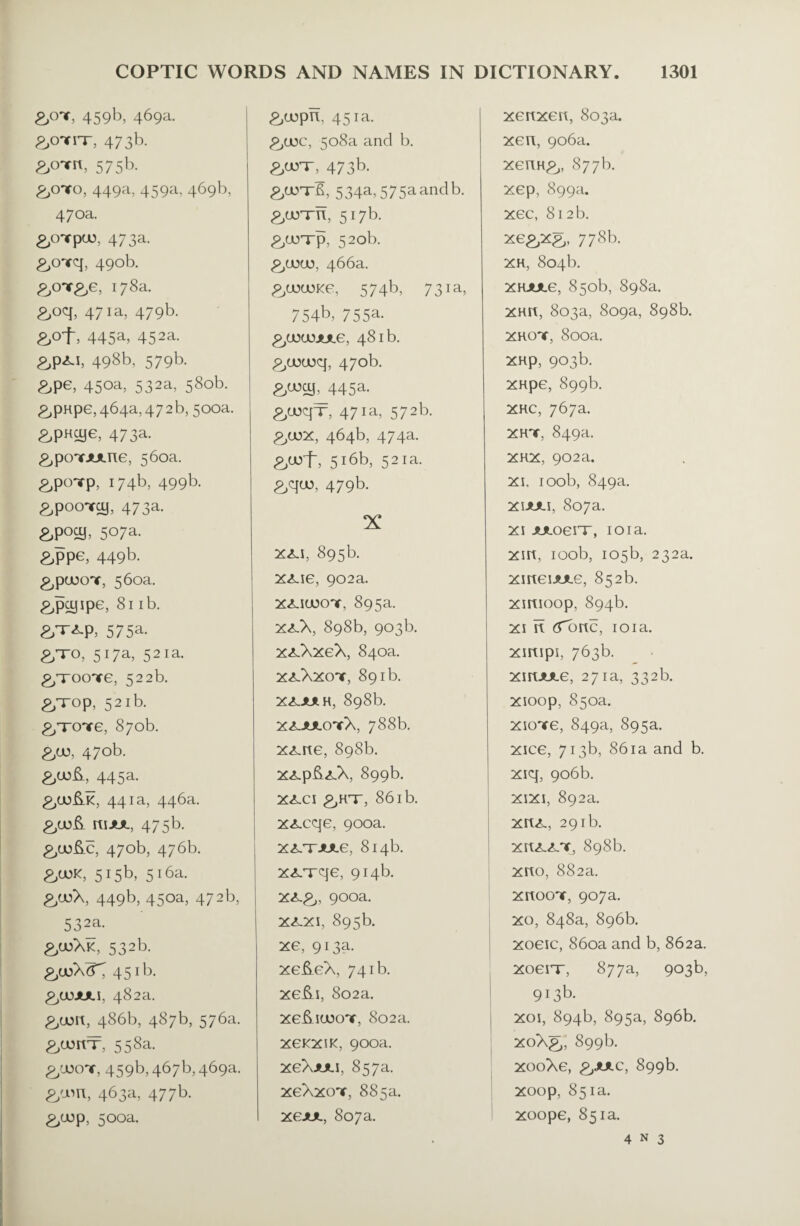 COPTIC WORDS AND NAMES IN DICTIONARY. 1301
ϩⲟⲩ, 459b, 469a.
ϩⲟⲩⲓⲧ, 473b.
ϩⲟⲩⲛ, 575b.
ϩⲟⲩⲟ, 449a, 459a, 469b,
470a.
ϩⲟⲩⲣⲱ, 473a.
ϩⲟⲩϥ, 490b.
ϩⲟⲩϩⲉ, 178a.
ϩⲟϥ, 471a, 479b.
ϩⲟϯ, 445a, 452a.
ϩⲣⲁⲓ, 498b, 579b.
ϩⲣⲉ, 450a, 532a, 580b.
ϩⲣⲏⲣⲉ, 464a, 472b, 500a.
ϩⲣⲏϣⲉ, 473a.
ϩⲣⲟⲩⲙⲡⲉ, 560a.
ϩⲣⲟⲩⲣ, 174b, 499b.
ϩⲣⲟⲟⲩϣ, 473a.
ϩⲣⲟϣ, 507a.
ϩⲣ̄ⲣⲉ, 449b.
ϩⲣⲱⲟⲩ, 560a.
ϩⲣ̄ϣⲓⲣⲉ, 811b.
ϩⲧⲁⲣ, 575a.
ϩⲧⲟ, 517a, 521a.
ϩⲧⲟⲟⲩⲉ, 522b.
ϩⲧⲟⲣ, 521b.
ϩⲧⲟⲩⲉ, 870b.
ϩⲱ, 470b.
ϩⲱⲃ, 445a.
ϩⲱⲃ̄ⲕ, 441a, 446a.
ϩⲱⲃ ⲛⲓⲙ, 475b.
ϩⲱⲃ̄ⲥ, 470b, 476b.
ϩⲱⲕ, 515b, 516a.
ϩⲱⲗ, 449b, 450a, 472b,
532a.
ϩⲱⲗⲕ̄, 532b.
ϩⲱⲗϭ̄, 451b.
ϩⲱⲙⲓ, 482a.
ϩⲱⲛ, 486b, 487b, 576a.
ϩⲱⲛⲧ̄, 558a.
ϩⲱⲟⲩ, 459b, 467b, 469a.
ϩⲱⲡ, 463a, 477b.
ϩⲱⲣ, 500a.
ϩⲱⲣⲡ̄, 451a.
ϩⲱⲥ, 508a and b.
ϩⲱⲧ, 473b.
ϩⲱⲧⲃ̄, 534a, 575a and b.
ϩⲱⲧⲡ̄, 517b.
ϩⲱⲧⲣ̄, 520b.
ϩⲱⲱ, 466a.
ϩⲱⲱⲕⲉ, 574b, 731a,
754b, 755a.
ϩⲱⲱⲙⲉ, 481b.
ϩⲱⲱϥ, 470b.
ϩⲱϣ, 445a.
ϩⲱϥⲧ̄, 471a, 572b.
ϩⲱϫ, 464b, 474a.
ϩⲱϯ, 516b, 521a.
ϩϥⲱ, 479b.
Ϫ
ϫⲁⲓ, 895b.
ϫⲁⲓⲉ, 902a.
ϫⲁⲓⲱⲟⲩ, 895a.
ϫⲁⲗ, 898b, 903b.
ϫⲁⲗϫⲉⲗ, 840a.
ϫⲁⲗϫⲟⲩ, 891b.
ϫⲁⲙⲏ, 898b.
ϫⲁⲙⲟⲩⲗ, 788b.
ϫⲁⲛⲉ, 898b.
ϫⲁⲣⲃⲁⲗ, 899b.
ϫⲁⲥⲓ ϩⲏⲧ, 861b.
ϫⲁⲥϥⲉ, 900a.
ϫⲁⲧⲙⲉ, 814b.
ϫⲁⲧϥⲉ, 914b.
ϫⲁϩ, 900a.
ϫⲁϫⲓ, 895b.
ϫⲉ, 913a.
ϫⲉⲃⲉⲗ, 741b.
ϫⲉⲃⲓ, 802a.
ϫⲉⲃⲓⲱⲟⲩ, 802a.
ϫⲉⲕϫⲓⲕ, 900a.
ϫⲉⲗⲙⲓ, 857a.
ϫⲉⲗϫⲟⲩ, 885a.
ϫⲉⲙ, 807a.
ϫⲉⲛϫⲉⲛ, 803a.
ϫⲉⲛ, 906a.
ϫⲉⲛⲏϩ, 877b.
ϫⲉⲣ, 899a.
ϫⲉⲥ, 812b.
ϫⲉϩϫϩ, 778b.
ϫⲏ, 804b.
ϫⲏⲙⲉ, 850b, 898a.
ϫⲏⲛ, 803a, 809a, 898b.
ϫⲏⲟⲩ, 800a.
ϫⲏⲣ, 903b.
ϫⲏⲣⲉ, 899b.
ϫⲏⲥ, 767a.
ϫⲏⲩ, 849a.
ϫⲏϫ, 902a.
ϫⲓ, 100b, 849a.
ϫⲓⲙⲓ, 807a.
ϫⲓ ⲙⲟⲉⲓⲧ, 101a.
ϫⲓⲛ, 100b, 105b, 232a.
ϫⲓⲛⲉⲓⲙⲉ, 852b.
ϫⲓⲛⲓⲟⲟⲣ, 894b.
ϫⲓ ⲛ̄ ϭⲟⲛⲥ̄, 101a.
ϫⲓⲛⲓⲣⲓ, 763b.
ϫⲓⲛⲙ̄ⲉ, 271a, 332b.
ϫⲓⲟⲟⲣ, 850a.
ϫⲓⲟⲩⲉ, 849a, 895a.
ϫⲓⲥⲉ, 713b, 861a and b.
ϫⲓϥ, 906b.
ϫⲓϫⲓ, 892a.
ϫⲛⲁ, 291b.
ϫⲛⲁⲁⲩ, 898b.
ϫⲛⲟ, 882a.
ϫⲛⲟⲟⲩ, 907a.
ϫⲟ, 848a, 896b.
ϫⲟⲉⲓⲥ, 860a and b, 862a.
ϫⲟⲉⲓⲧ, 877a, 903b,
913b.
ϫⲟⲓ, 894b, 895a, 896b.
ϫⲟⲗϩ̄, 899b.
ϫⲟⲟⲗⲉ, ϩⲙⲥ, 899b.
ϫⲟⲟⲡ, 851a.
ϫⲟⲟⲣⲉ, 851a.
4 N 3